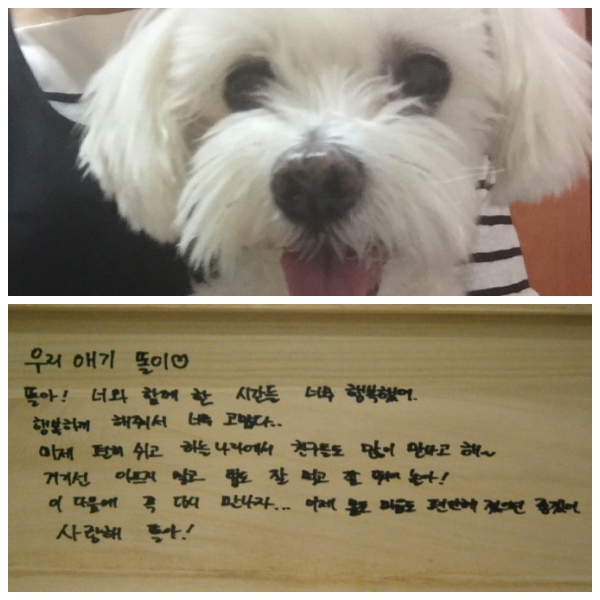 우리 애기 똘이♡
똘아! 너와 함께 한 시간들 너무 행복했어.
행복하게 해줘서 너무 고맙다..
이제 편히 쉬고 하늘나라에서 친구들도 많이 만나고 해~
거기선 아프지 말고 밥도 잘 먹고 잘 뛰어 놀아!
이 다음에 꼭 다시 만나자... 이제 몸도 마음도 편안해 졌으면 좋겠어
사랑해 똘아!